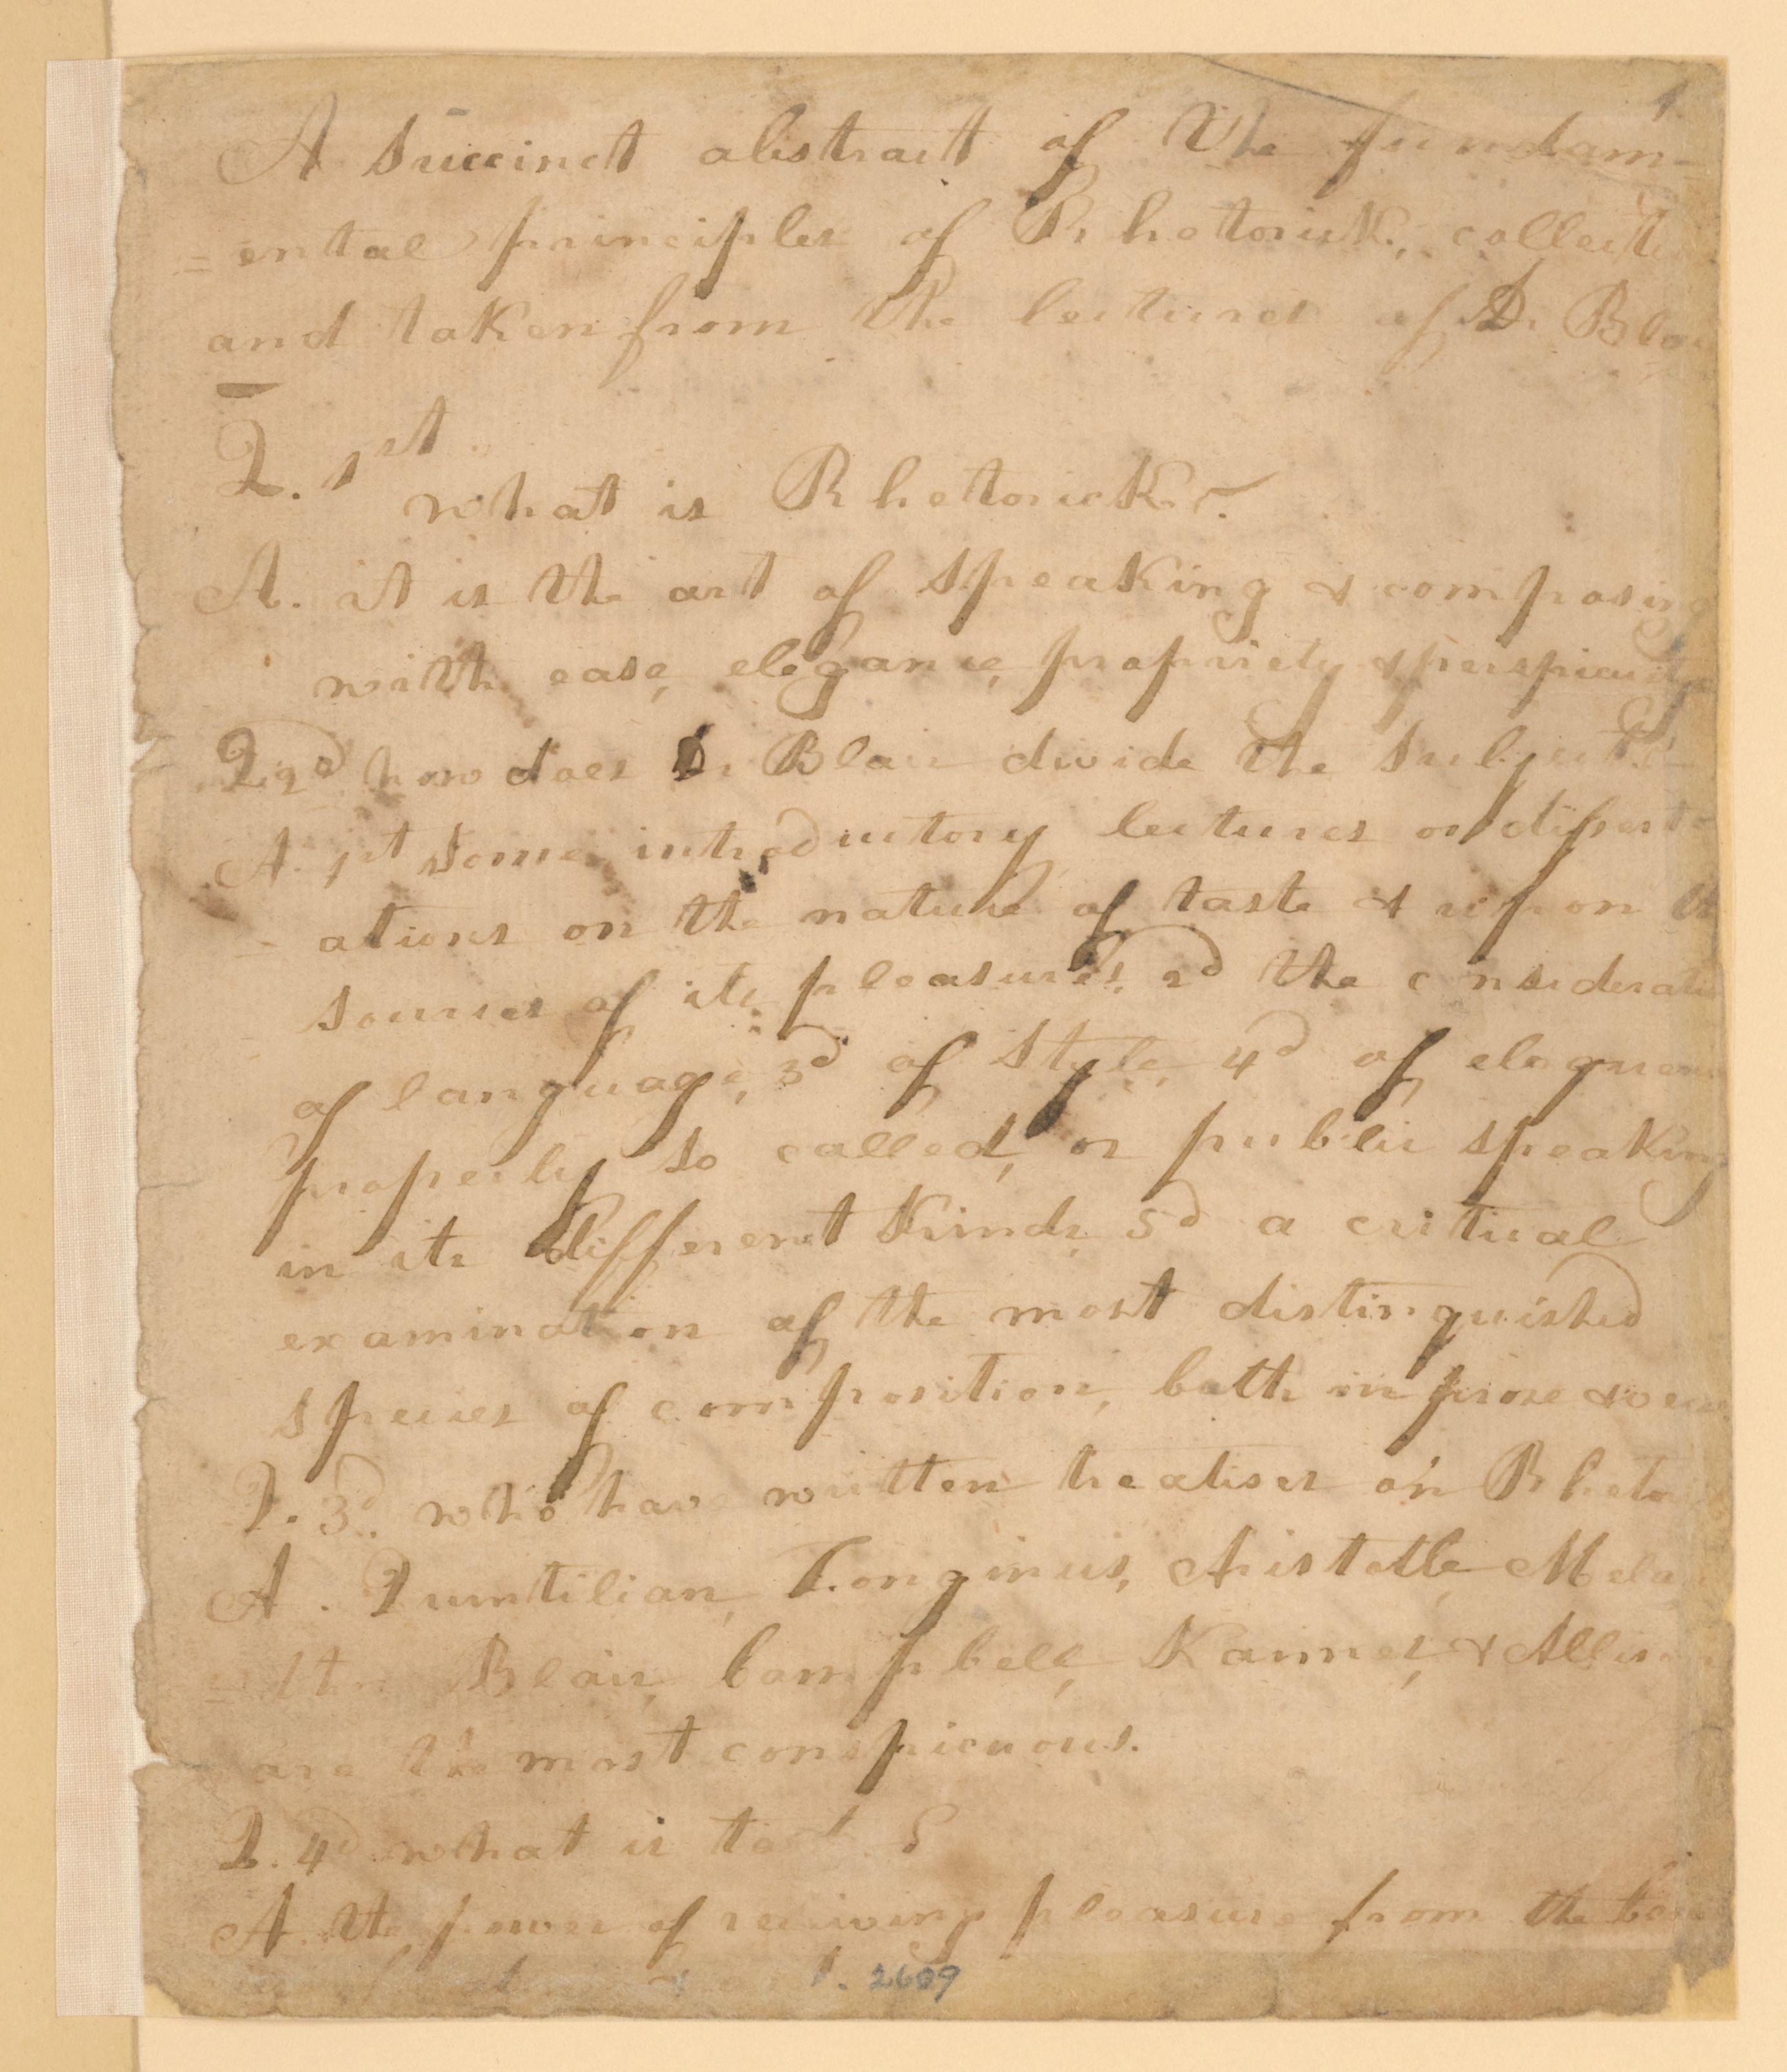 1.
A Succinct abstract of the fundam-
=ental principles of Rhetorick, collecte
and taken from the lectures of Dr Blai
Q. 1st
what is Rhetorick?
A. it is the art of speaking & composing
with ease, elegance, propriety & perspicuity
Q 2d how does Dr Blair divide the Subject?
A. 1st Some introductory lectures or dissert
ations on the nature of taste & upon th
sources of its pleasures, 2d the consideratio
of language, 3d of Style, 4d of eloquen
properly so called, or public speaking
in its different kinds, 5d a critical
examination of the most distinguished
species of composition, both in prose & ver
Q. 3d. who have written treatises on Rhetor
A. Quintilian, Longinus, Aristotle, Mela
Blair, Campbell, Kaimes, & Allison
are the most conspicuous.
Q. 4d what is ta
A. the power of receiving pleasure from the be
1. 2609